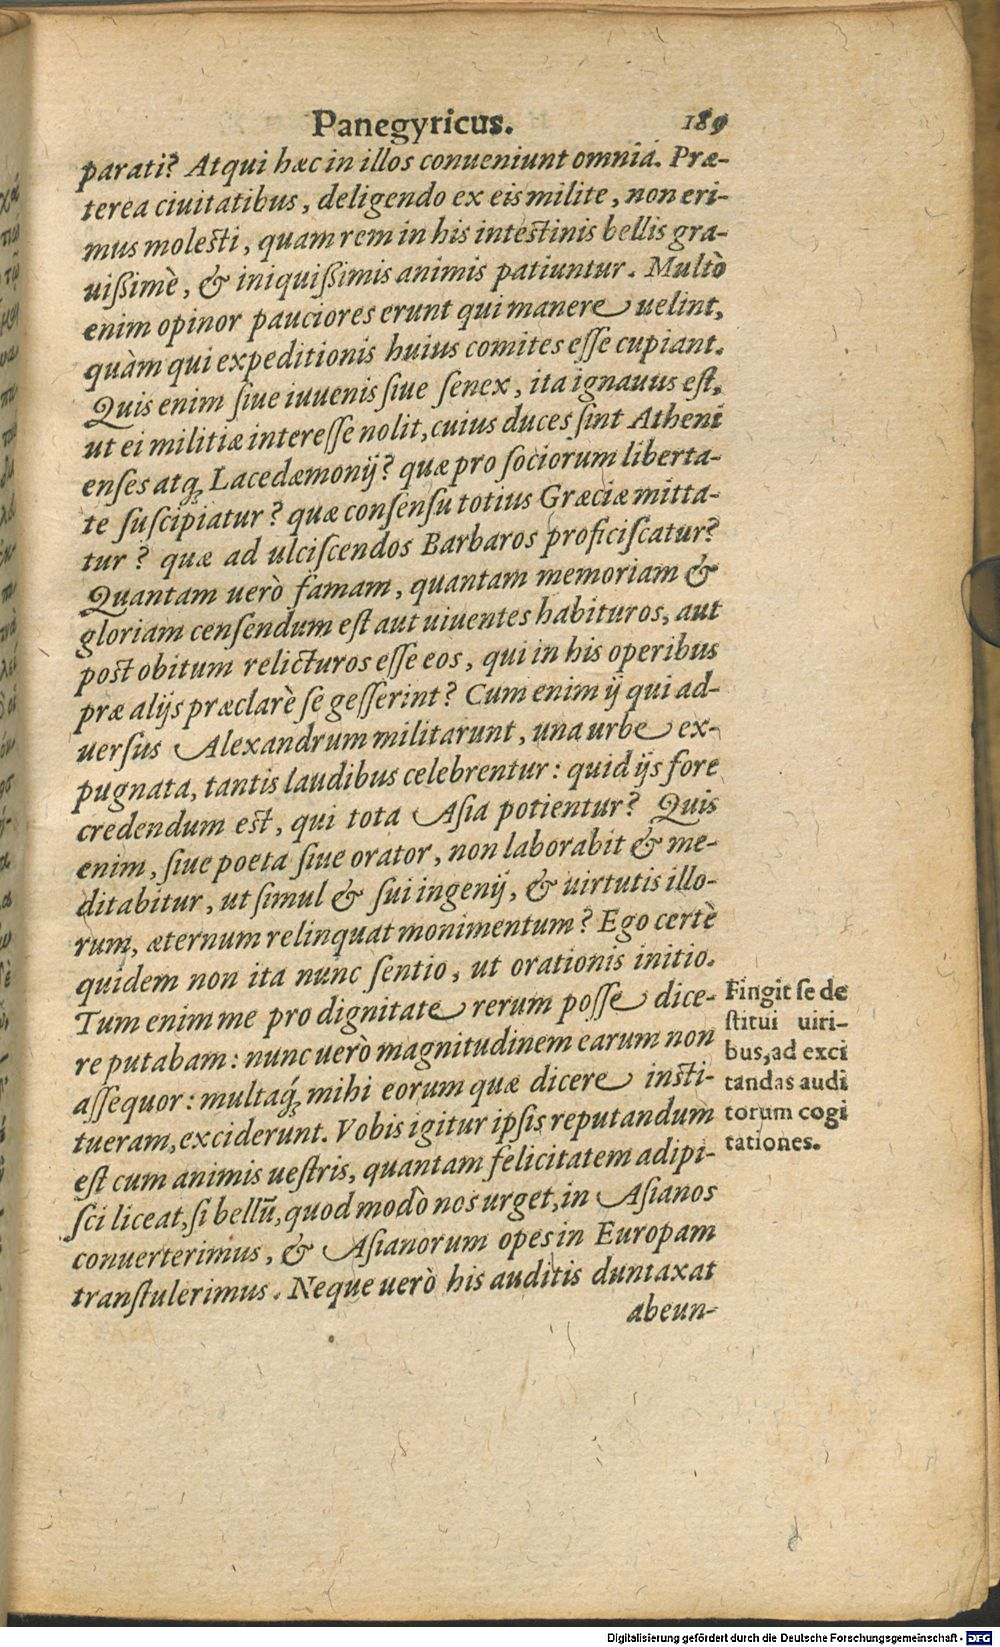 Panegyricus. 189
parati? Atqui hæc in illos conueniunt omnia. Præ-
terea ciuitatibus, deligendo ex eis milite, non eri-
mus molesti, quam rem in his intestinis bellis gra-
uißimè, & iniquißimis animis patiuntur. Multò
enim opinor pauciores erunt qui manere uelint,
quàm qui expeditionis huius comites eſſe cupiant.
Quis enim ſiue iuuenis ſiue ſenex, ita ignauus eſt,
ut ei militiæ intereſſe nolit, cuius duces ſint Atheni
enſes atq; Lacedæmonij? quæ pro ſociorum liberta-
te ſuſcipiatur? quæ conſenſu totius Græciæ mitta-
tur? quæ ad ulciſcendos Barbaros proficiſcatur?
Quantam uerò famam, quantam memoriam &
gloriam cenſendum eſt aut uiuentes habituros, aut
post obitum relicturos eſſe eos, qui in his operibus
præ alijs præclarè ſe geſſerint? Cum enim ij qui ad-
uerſus Alexandrum militarunt, una urbe ex-
pugnata, tantis laudibus celebrentur: quid ijs fore
credendum est, qui tota Aſia potientur? Quis
enim, ſiue poeta ſiue orator, non laborabit & me-
ditabitur, ut ſimul & ſui ingenij, & uirtutis illo-
rum, æternum relinquat monimentum? Ego certè
quidem non ita nunc ſentio, ut orationis initio.
Tum enim me pro dignitate rerum poſſe dice-
re putabam: nunc uerò magnitudinem earum non
aſſequor: multaq́; mihi eorum quæ dicere insti-
tueram, exciderunt. Vobis igitur ipſis reputandum
eſt cum animis ueſtris, quantam felicitatem adipi-
ſci liceat, ſi bellū, quod modò nos urget, in Aſianos
conuerterimus, & Aſianorum opes in Europam
tranſtulerimus. Neque uerò his auditis duntaxat
abeun-
Fingit ſe de
ſtitui uiri-
bus, ad exci
tandas audi
torum cogi
tationes.
Digitalisierung gefördert durch die Deutsche Forschungsgemeinschaft - DFG